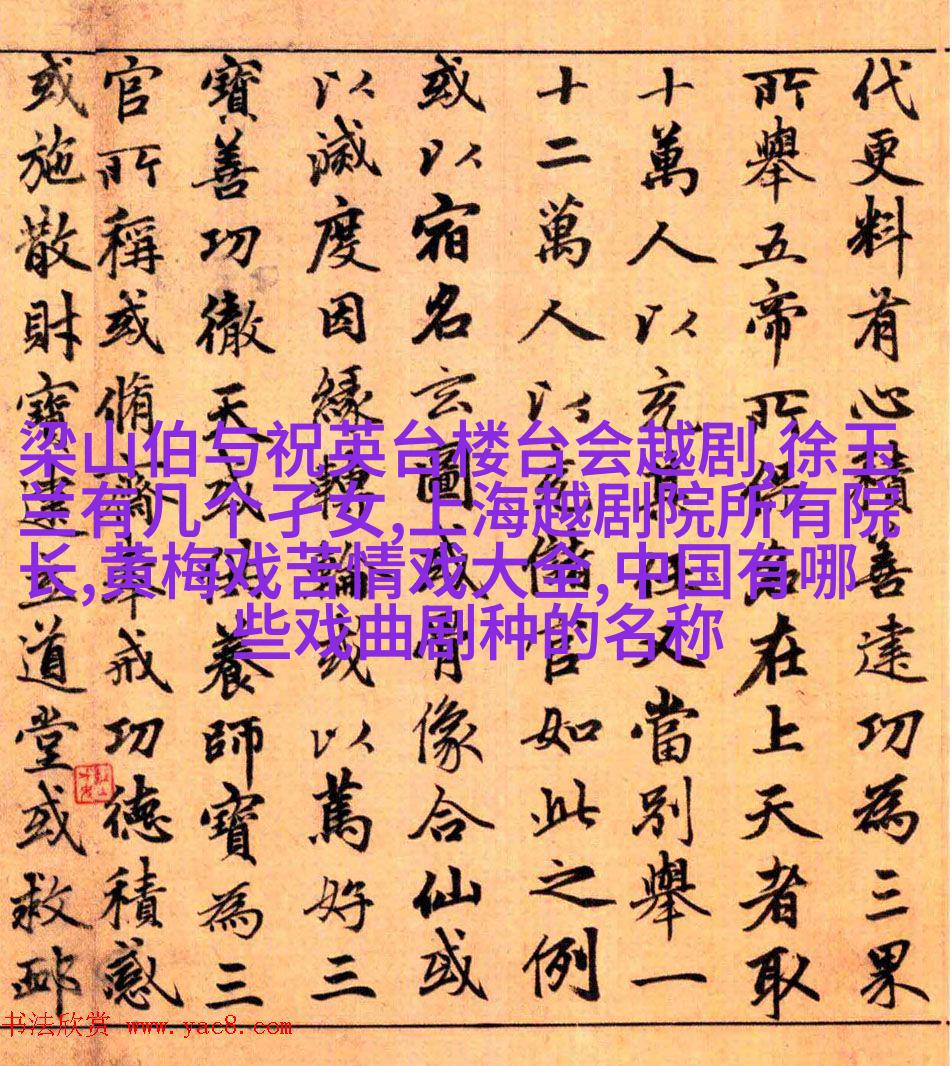 代更料有心積善達功為三果
所舉五帝所名在上天者取
十萬人以充其任又當別舉一
十二萬人以充官如此之例
或以宿名玄圖或骨像合仙或
以滅度因緣轉輪或以篤好三
寶善功徹天或供養師寶為三
官所稱或脩齋奉戒功德積感
或施散財寶建立道堂或救卹
梁山伯与祝英台楼台会越剧,徐玉
兰有几个孑女,上海越剧院所有院
长,黄梅戏苦情戏大全,中国有哪
些戏曲剧种的名称
书法欣赏 www.yac8.com